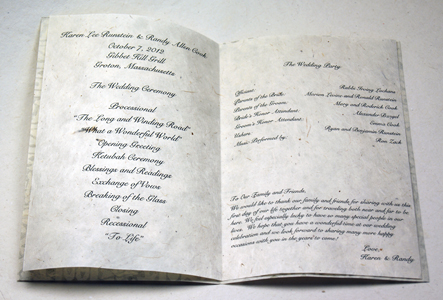 Karen Lee Runstein & Randy Allen Cook
October 7, 2012
Gibbet Hill Grill
Groton, Massachusetts
The Wedding Ceremony
Processional
"The Long and Winding Road"
"What a Wonderful World"
Opening Greeting
Ketubah Ceremony
Blessings and Readings
Exchange of Vows
Breaking of the Glass
Closing
Recessional
"To Life"
The Wedding Party
Officiant: Rabbi Irving
Parents of the Bride: Marion Louise and Ronald Runstein
Parents of the Groom: Mary and Roderick Cook
Bride's Honor Attendant: Alexander
Groom's Honor Attendant: Cook
Ushers: Ryan and Benjamin Runstein
Music Performed by: Ron
To Our Family and Friends,
We would like to thank our family and friends for sharing with us this
first day of our life together and for traveling both near and far to be
here. We feel especially lucky to have so many special people in our
lives. We hope that you have a wonderful time at our wedding
celebration and we look forward to sharing many more happy
occasions with you in the years to come!
Love,
Karen & Randy